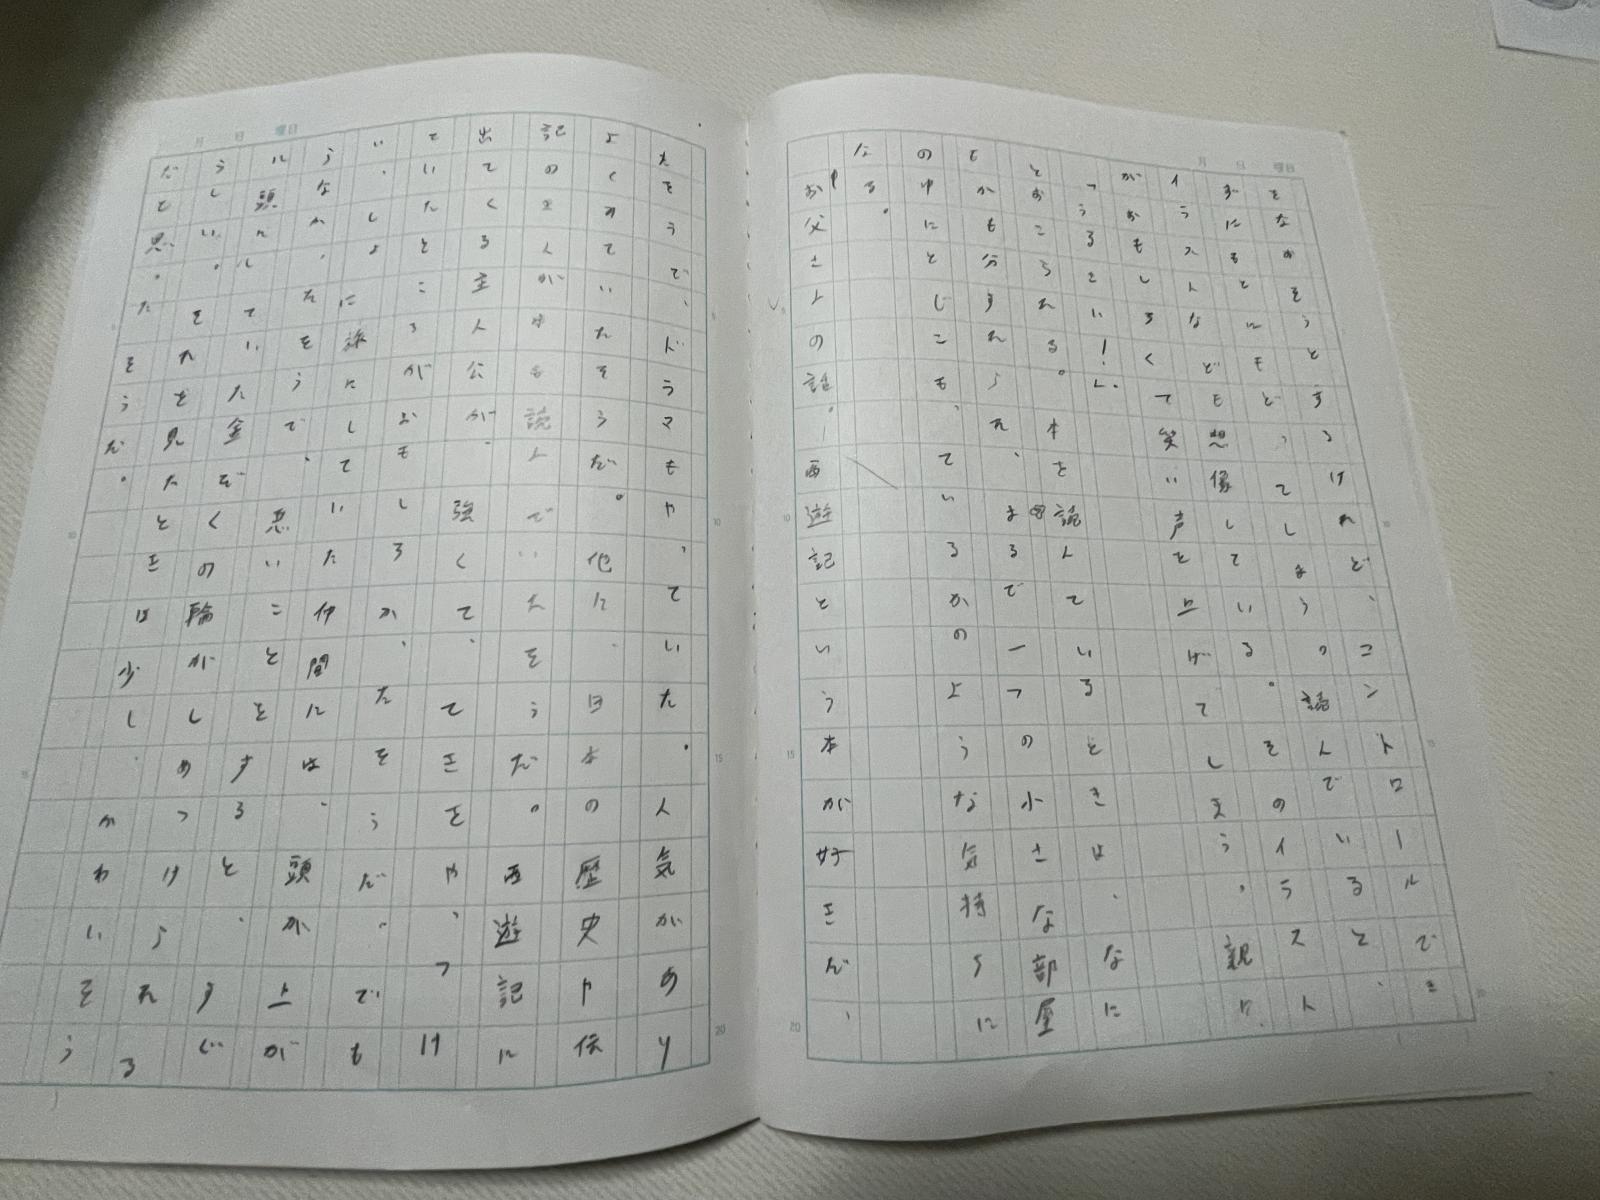 をなおそうとするけれど、コントロールでき
ずにもとにもどってしまう。読んでいると、
イラストなども想像している。そのイラスト
がおもしろくて笑い声を上げてしまう、親に
「うるさい！」
とおこられる。本を読んでいるときは、なに
もかも分すれられ、まるで一つの小さな部屋
の中にとじこもっているかのような気持ちに
なる。
お父さんの話。「西遊記という本が好きだっ
たそうで、ドラマもやっていた。人気があり
よくみていたそうだ。他に、日本の歴史や伝
記のまんが中も読んでいたそうだ。西遊記に
出てくる主人公が、強くて、てきをやっつけ
ていたところがおもしろかったそうだ。でも
いっしょに旅をしていた仲間には、頭が上が
らなかったそうで、悪いことをすると、すぐ
に頭にしていた金ぞくの輪がしめつけられる
らしい。それを見たときは少しかわいそう
だと思ったそうだ。